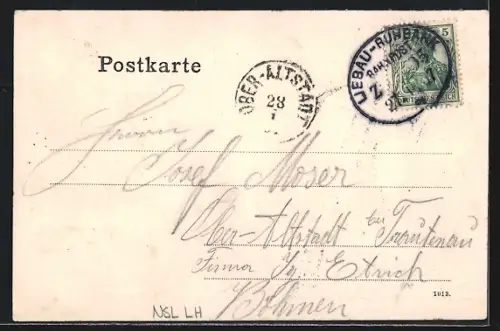 5
LIEBAU-RUHBANK
BAHNPOST
Z.
Postkarte
OBER-ALTSTADT
28
1
Herrn
Josef Moser
Ober-Altstadt bei Trautenau
Firma Etrich
Böhmen
1012.
NSL LH